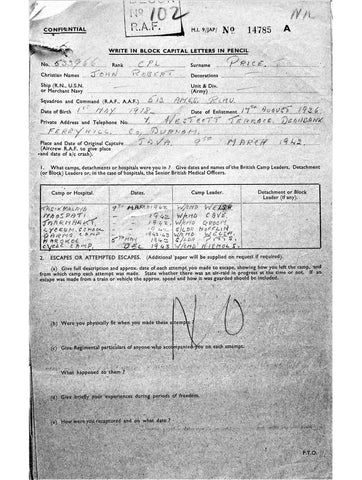 No 102
R.A.F.
CONFIDENTIAL M.I. 9/JAP/ No 14785 A
WRITE IN BLOCK CAPITAL LETTERS IN PENCIL
No. Rank CPL Surname PRICE
Christian Names JOHN ROBERT Decorations
Ship (R.N., U.S.N. or Merchant Navy) Unit & Div. (Army)
Squadron and Command (R.A.F., A.A.F.)
Date of Birth 1st MAY 1918 Date of Enlistment 17th AUGUST 1936
Private Address and Telephone No. TERRACE, DEANBANK
FERRYHILL, CO. DURHAM.
Place and Date of Original Capture JAVA 9TH MARCH 1942.
(Aircrew R.A.F. to give place
and date of a/c crash).
1. What camps, detachments or hospitals were you in? Give dates and names of the British Camp Leaders, Detachment
(or Block) Leaders or, in the case of hospitals, the Senior British Medical Officers.
Camp or Hospital. Date. Camp Leader. Detachment or Block Leader (if any).
TASIKMALAYA 1942 W/CMD
MAOSPATI 1942 W/CMD CAVE
JAARMARKT 1942 W/CMD
LYCEUM SCHOOL 1942
CAMP W/CMD WELCH
HAROEKOE 5TH MAY S/LDR PITTS
CYCLE CAMP DEC 1943 W/CMD NICHOLS
2. ESCAPES OR ATTEMPTED ESCAPES. (Additional paper will be supplied on request if required)
(a) Give full description and approx. date of each attempt you made to escape, showing how you left the camp, and
from which camp each attempt was made. State whether there was an air-raid in progress at the time or not. If an
escape was made from a train or vehicle the approx. speed and how it was guarded should be included.
NO
(b) Were you physically fit when you made these attempts?
(c) Give Regimental particulars of anyone who accompanied you on each attempt.
What happened to them?
(d) Give briefly your experiences during periods of freedom.
(e) How were you recaptured and on what date?
P.T.O.